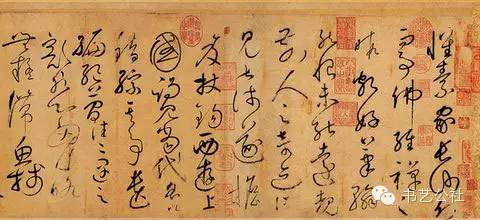 懷素家長沙幼而
事佛經禪之
暇頗好筆翰
然恨未能遠覩
前人之奇迹所
見甚淺遂擔
笈杖錫西遊上
國謁見當代名公
錯綜其事遺
編絕簡往往遇之
豁然心胸略
無疑滯魚牋
书艺公社